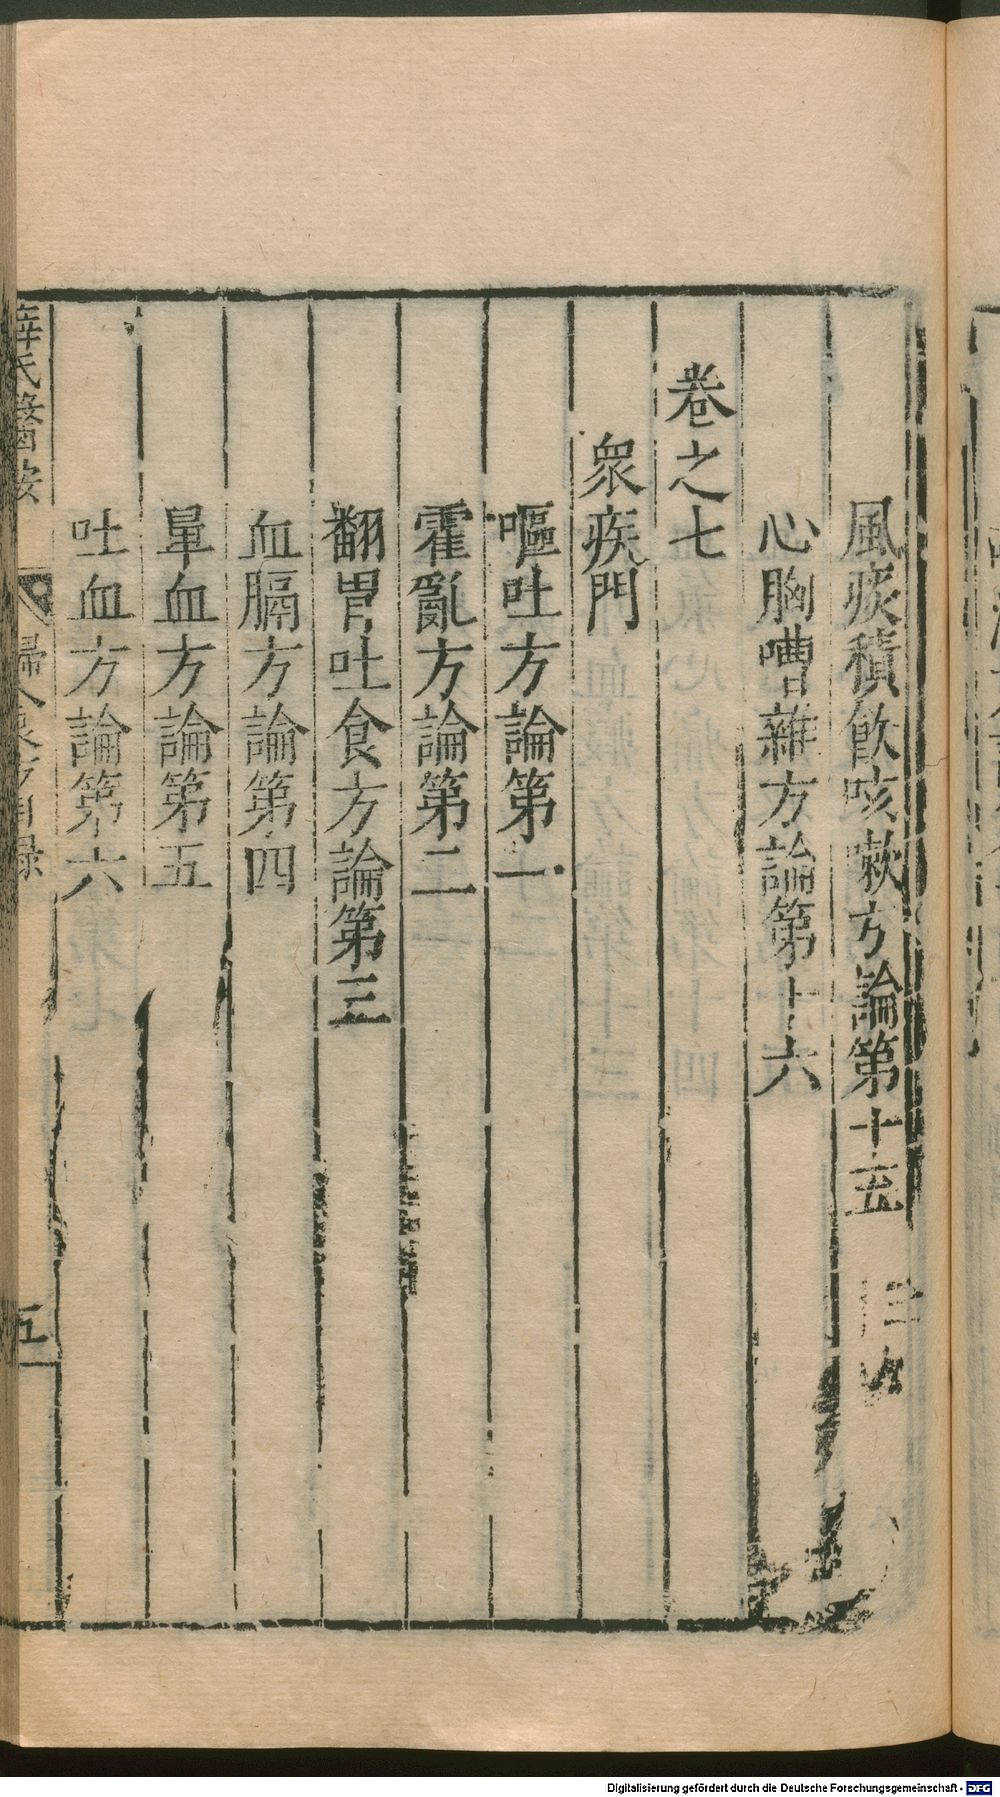 風痰積飲咳嗽方論第十五
心胸嘈雜方論第十六
卷之七
衆疾門
嘔吐方論第一
霍亂方論第二
翻胃吐食方論第三
血膈方論第四
暈血方論第五
吐血方論第六
薛氏醫按
婦人良方目録
五
Digitalisierung gefördert durch die Deutsche Forschungsgemeinschaft - DFG